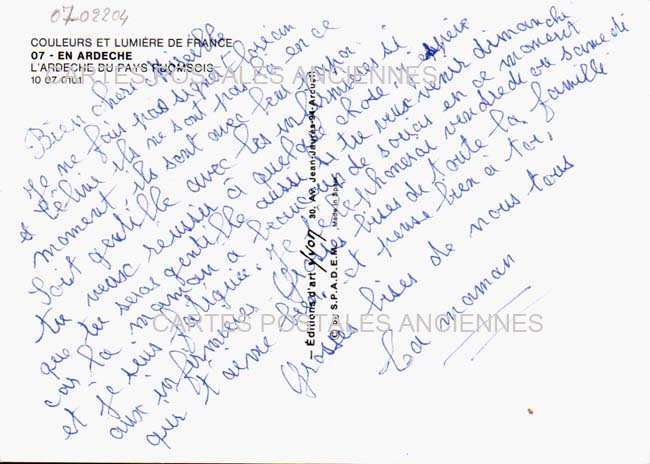 0702204
COULEURS ET LUMIÈRE DE FRANCE
07 - EN ARDECHE
L'ARDECHE DU PAYS
10 07 0101
CARTES POSTALES ANCIENNES
Bien chère
Je ne fais pas signe
et Céline ils ne sont pas là en ce
moment, ils sont avec leur
Soit gentille avec les infirmières si
tu veux réussir à quelque chose j'espère
que tu seras gentille aussi si tu veux venir dimanche
car la maman a beaucoup de soucis en ce moment
et je suis fatiguée. Je téléphonerai vendredi ou samedi
aux infirmières. Grosses bises de toute la famille
que t'aime bien et pense bien à toi,
Grosses bises de nous tous
La maman
— Editions d'art yvon 30, Av. Jean-Jaurès-94-Arcueil
© by S.P.A.D.E.M. Made in
CARTES POSTALES ANCIENNES